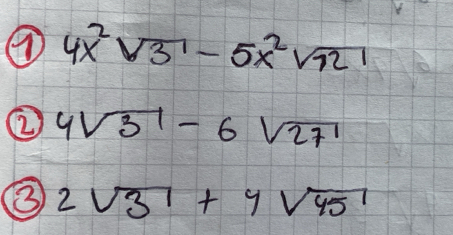 ① 4x²√3 - 5x²√12
② 4√3 - 6√27
③ 2√3 + 4√45